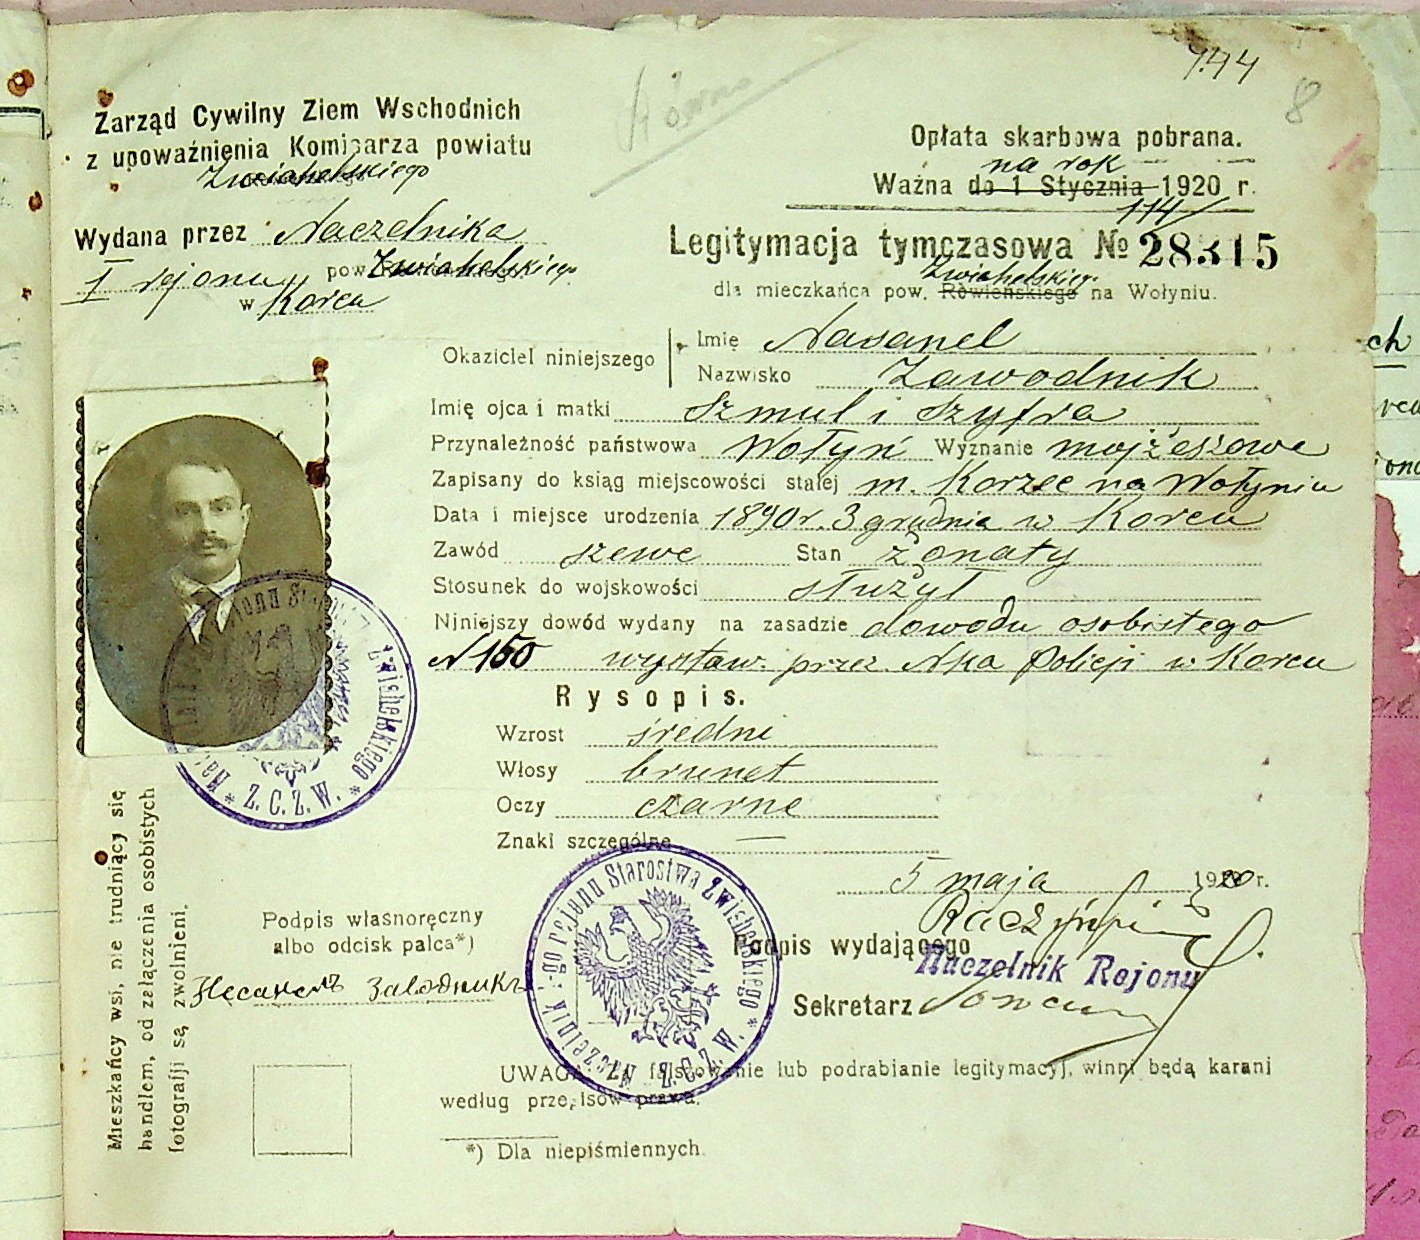 744
8
Równo
Zarząd Cywilny Ziem Wschodnich
z upoważnienia Komisarza powiatu
Zwiahelskiego
Opłata skarbowa pobrana.
na rok
Ważna do 1 Stycznia 1920 r.
Wydana przez Naczelnika
I rejonu pow. Zwiahelskiego
w Korcu
114/
Legitymacja tymczasowa № 28315
Zwiahelskiego
dla mieszkańca pow. Rówieńskiego na Wołyniu.
Okaziciel niniejszego
Imię Nasanel
Nazwisko Zawodnik
Imię ojca i matki Szmul i Szyfra
Przynależność państwowa Wołyń Wyznanie mojżeszowe
Zapisany do ksiąg miejscowości stałej m. Korzec na Wołyniu
Data i miejsce urodzenia 1890 r. 3 grudnia w Korcu
Zawód szewc Stan żonaty
Stosunek do wojskowości służył
Niniejszy dowód wydany na zasadzie dowodu osobistego
N 150 wystaw. przez N-ka Policji w Korcu
Rysopis.
Wzrost średni
Włosy brunet
Oczy czarne
Znaki szczególne —
5 maja 1920 r.
Podpis własnoręczny
albo odcisk palca*)
Несанель Заводникъ
Podpis wydającego
Naczelnik Rejonu
Sekretarz
Naczelnik I-go rejonu Starostwa Zwiahelskiego * Z.C.Z.W. *
Starostwa Zwiahelskiego * Z.C.Z.W. *
Mieszkańcy wsi, nie trudniący się
handlem, od załączenia osobistych
fotografji są zwolnieni.
UWAGA. Za fałszowanie lub podrabianie legitymacyj, winni będą karani
według przepisów prawa.
*) Dla niepiśmiennych.